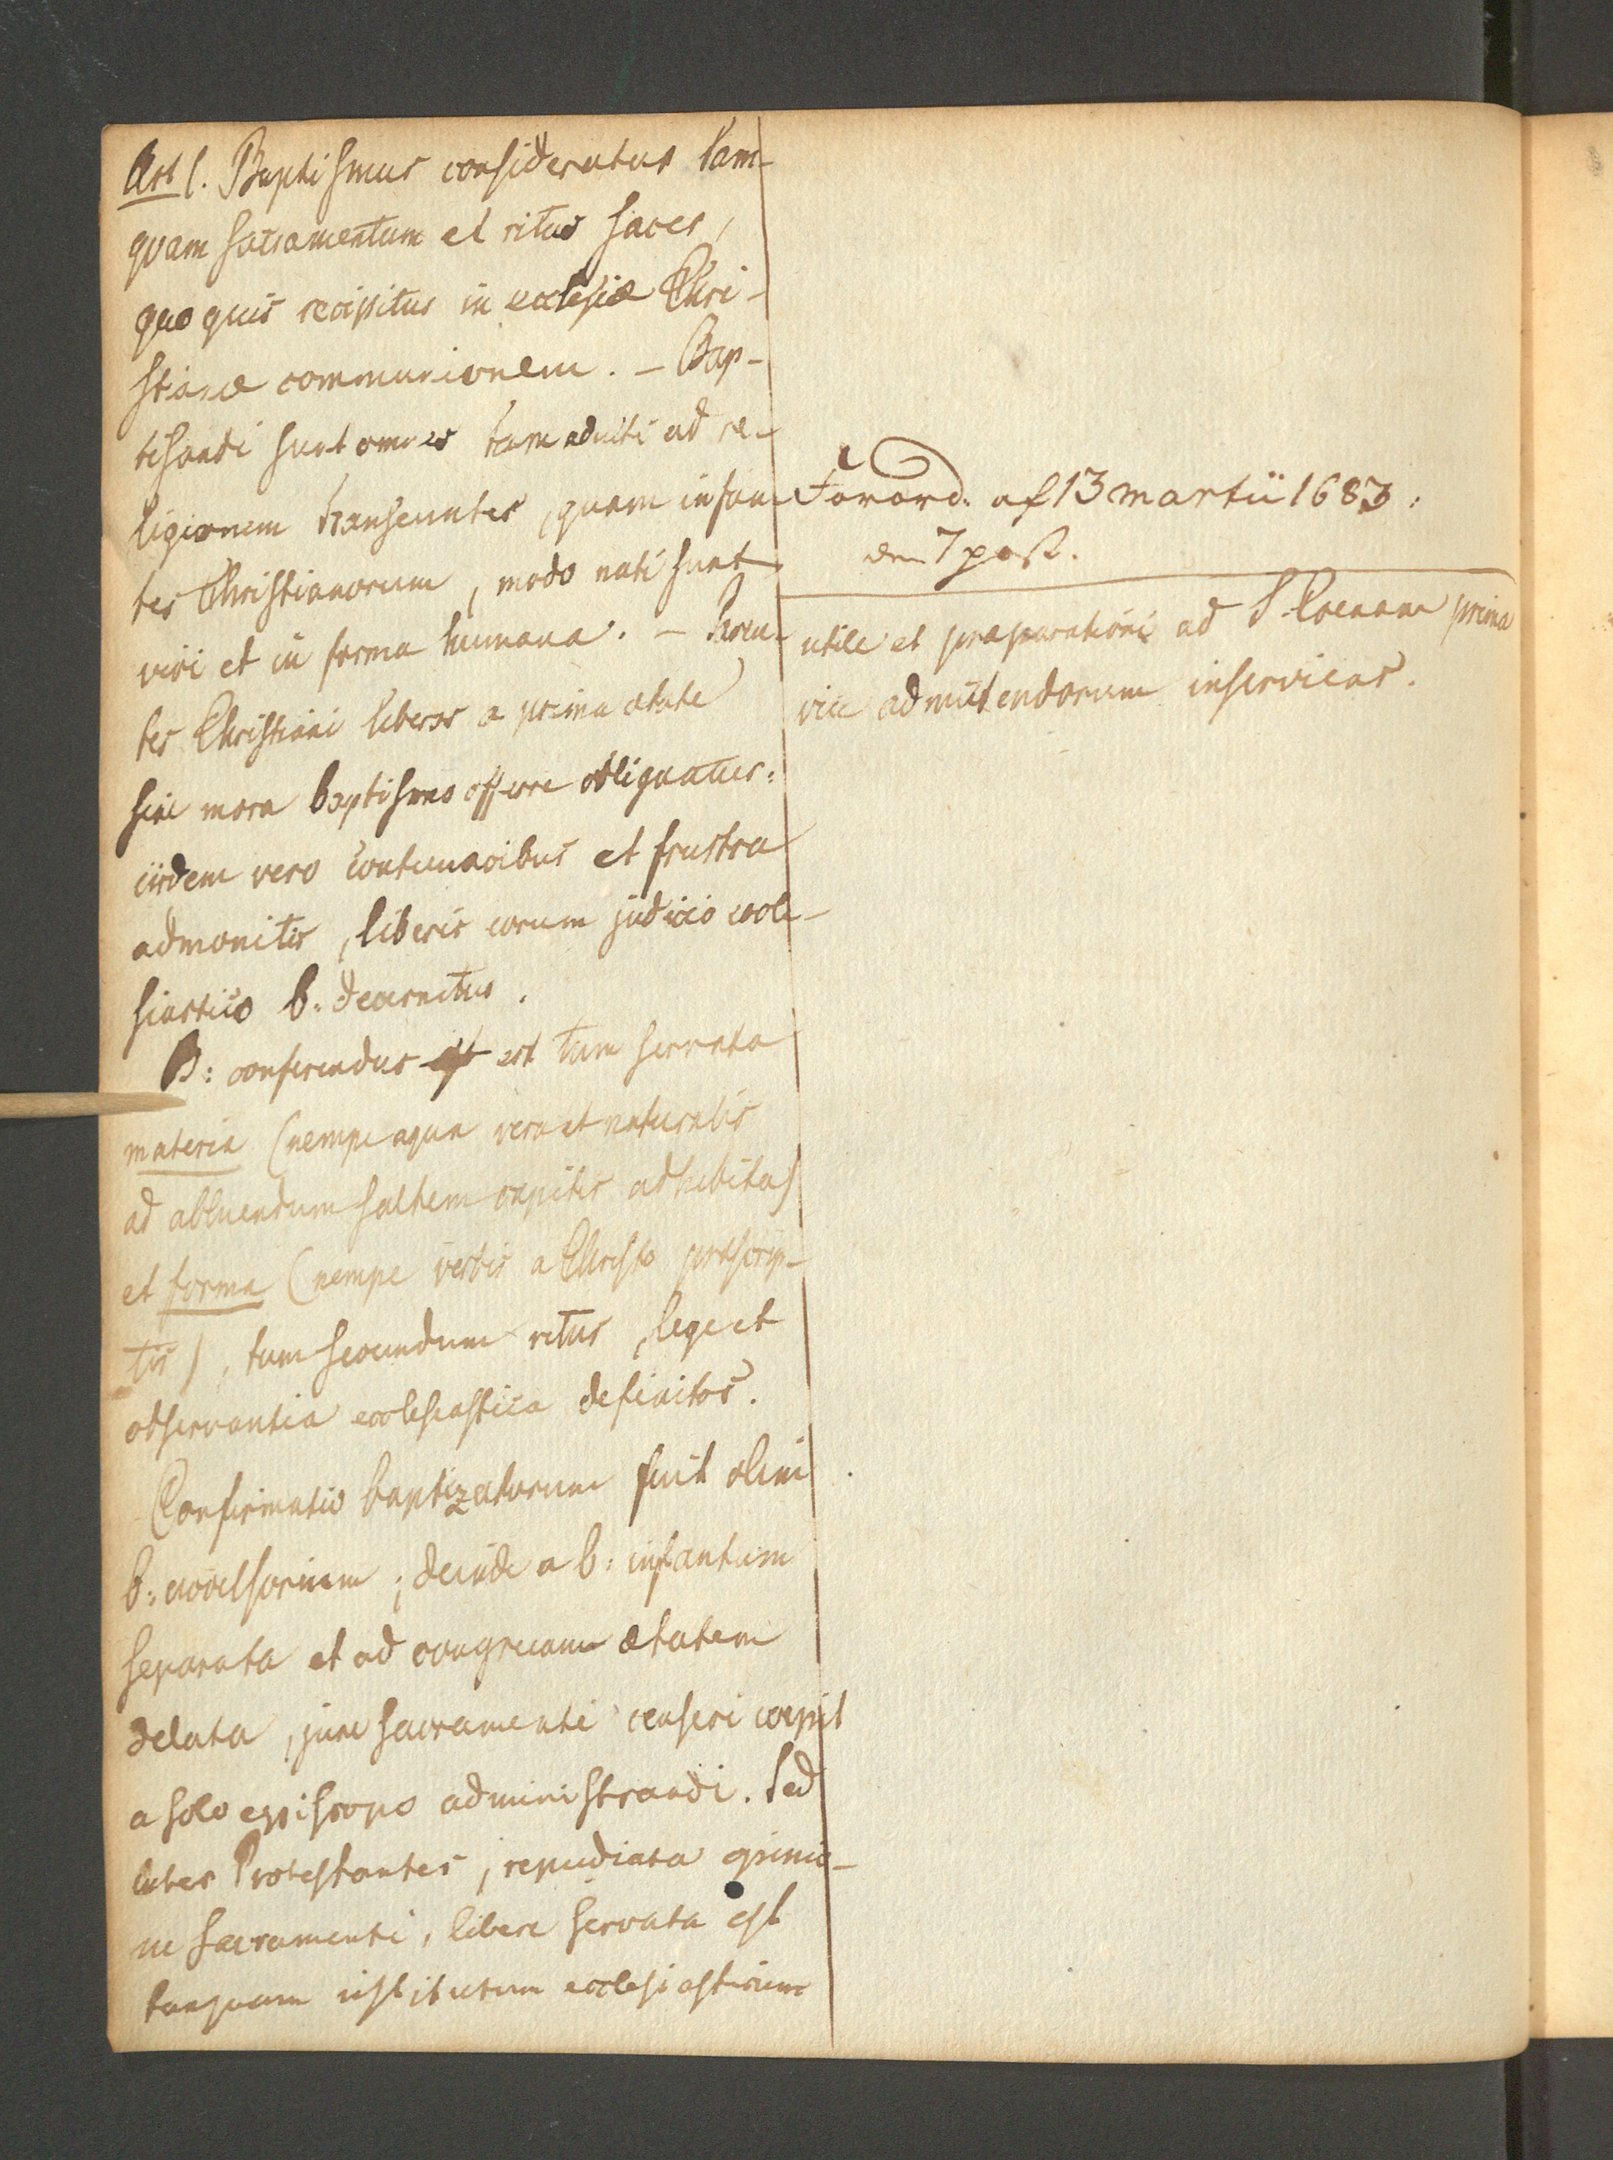 Art 1. Baptismus consideratus tam-
qvam sacramentum et ritus sacer,
quo quis recipitur in ecclesiæ Chri-
stianæ communionem. – Bap-
tisandi sunt omnes tam adulti ad re-
ligionem transeuntes, quam infan-
tes Christianorum, modo nati sunt
vivi et in forma humana. – Paren-
tes Christiani liberos a prima ætate
sine mora baptismo offerre obligantur:
iisdem vero contumacibus et frustra
admonitis, liberis eorum judicio eccle-
siastico b: decernitur.
B: conferendus est tam servata
materia (nempe aqua vera et naturalis
ad abluendum saltem capitis adhibita)
et forma (nempe verbis a Christo præscrip-
tis), tum secundum ritus, lege et
observantia ecclesiastica definitos.
Confirmatio baptizatorum fuit olim
b: accessorium; deinde a b: infantum
separata et ad congruam ætatem
delata, jure sacramenti censeri coepit
a solo episcopo administrandi. Sed
inter Protestantes, repudiata opinio-
ne sacramenti, libere servata est
tanquam institutum ecclesiasticum
Forord: af 13 martii 1683:
den 7 post.
utile et præparationi ad S. Coenam prima
vice admittendorum inserviens.